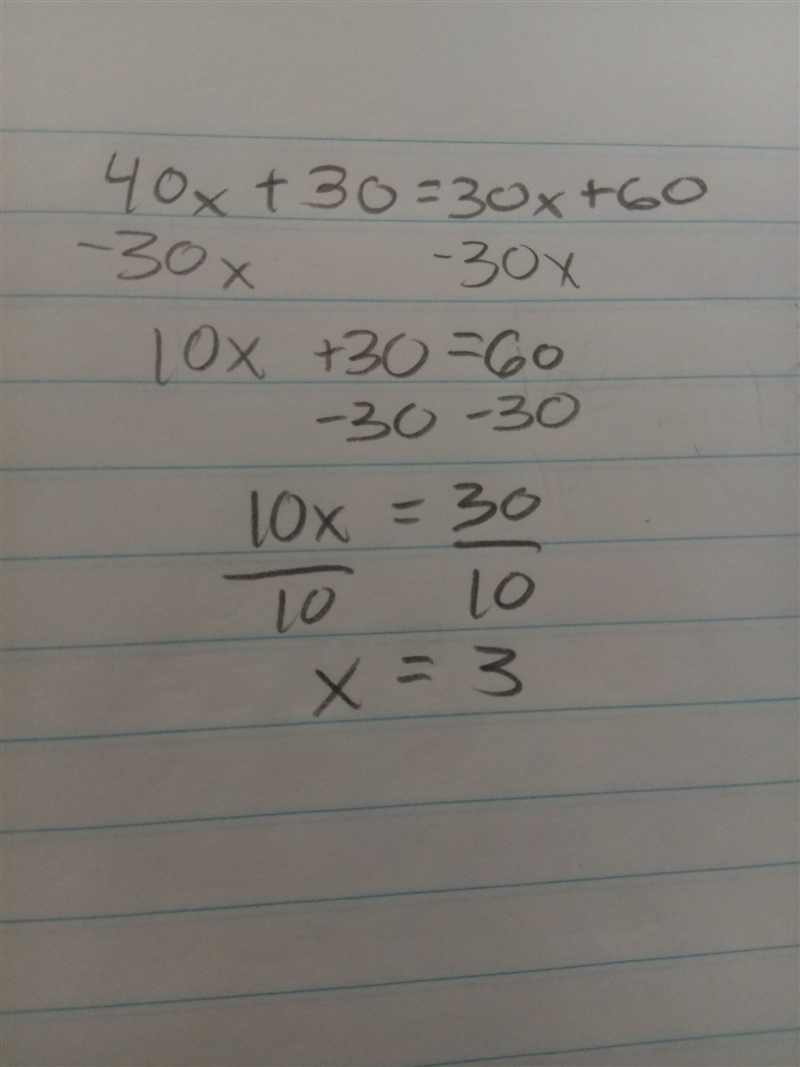 40x + 30 = 30x + 60
-30x -30x
10x + 30 = 60
-30 -30
10x = 30
10 10
x = 3